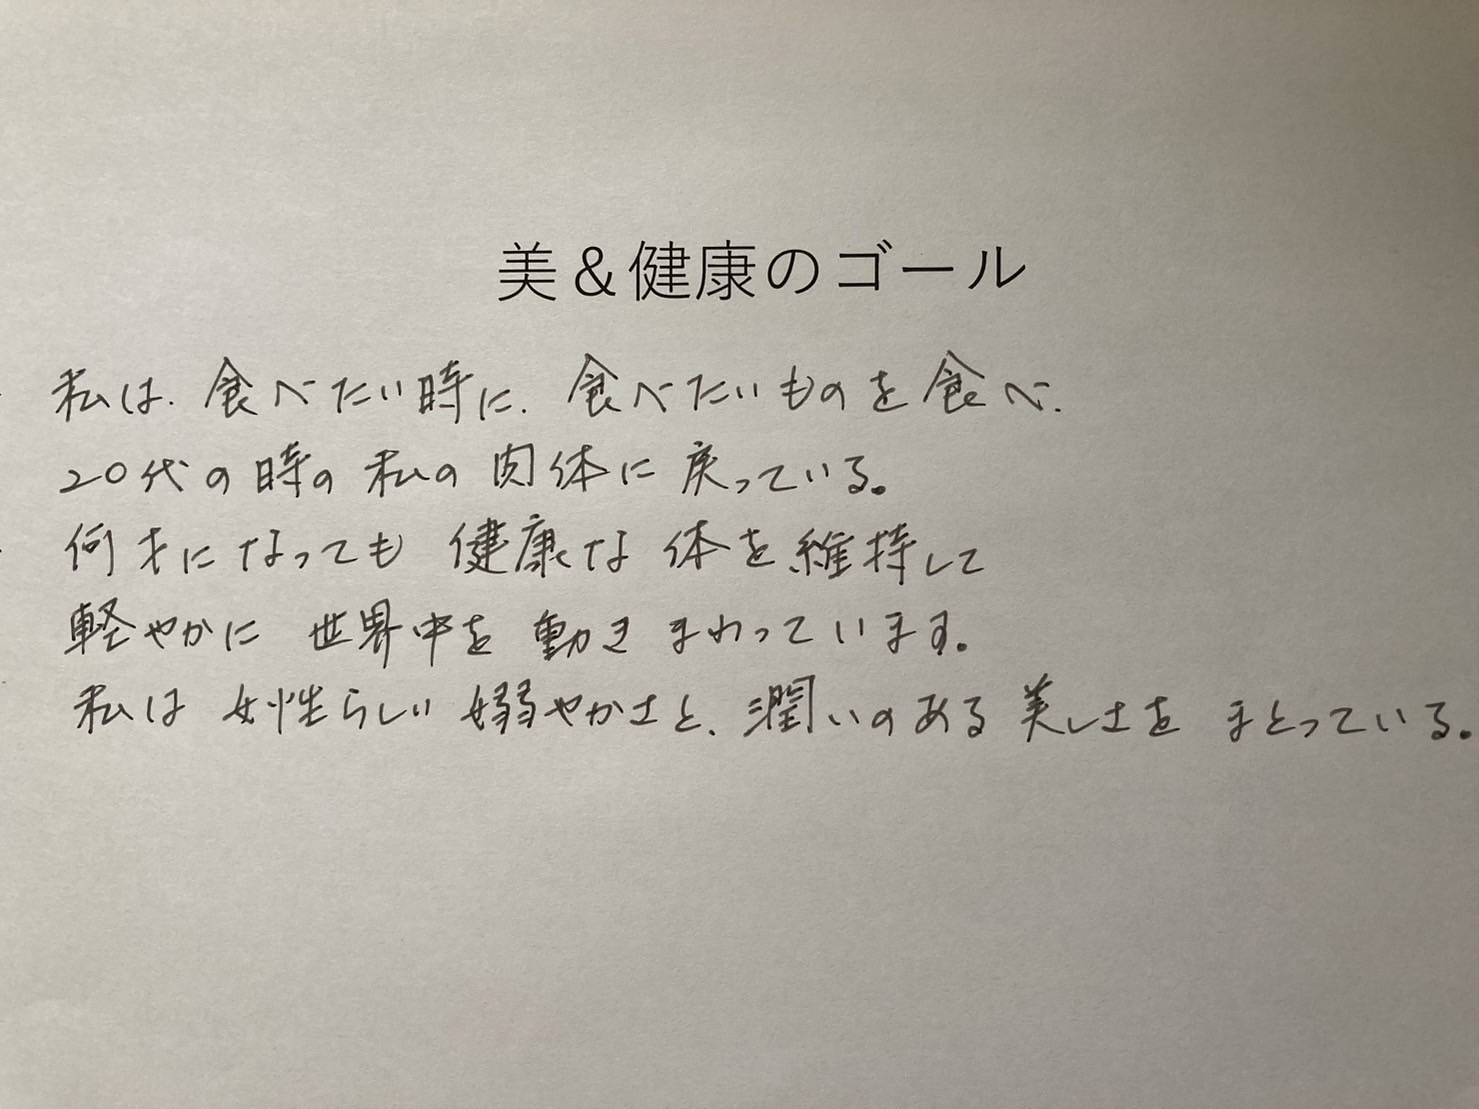 美＆健康のゴール
私は、食べたい時に、食べたいものを食べ、
20代の時の私の肉体に戻っている。
何才になっても 健康な 体を維持して
軽やかに 世界中を 動き まわっています。
私は 女性らしい 嫋やかさと、潤いのある 美しさを まとっている。